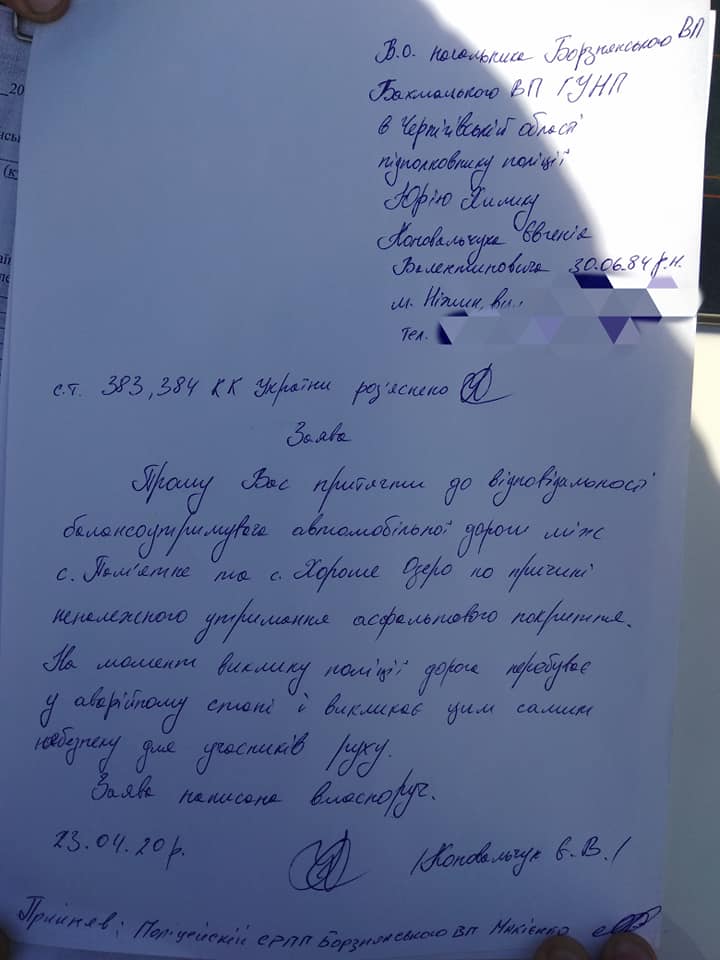 В.О. начальника Борзнянського ВП
Бахмацького ВП ГУНП
в Чернігівській області
підполковнику поліції
Юрію Хилику
Коновальчука Євгенія
Валентиновича 30.06.84 р.н.
м. Ніжин, вул.
Тел.
с.т. 383, 384 КК України роз'яснено
Заява
Прошу Вас притягти до відповідальності
балансоутримувача автомобільної дороги між
с. Пам'ятне та с. Хороше Озеро по причині
неналежного утримання асфальтового покриття.
На момент виклику поліції дорога перебуває
у аварійному стані і викликає цим самим
небезпеку для учасників руху.
Заява написана власноруч.
23.04.20 р.
/Коновальчук Є.В./
Прийняв: Поліцейскій СРПП Борзнянського ВП Микієнко
20
(к